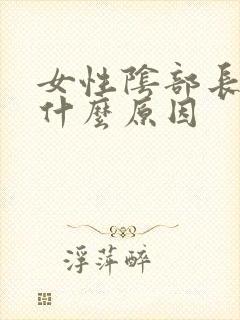 女性陰部長
什麼原因
浮萍醉